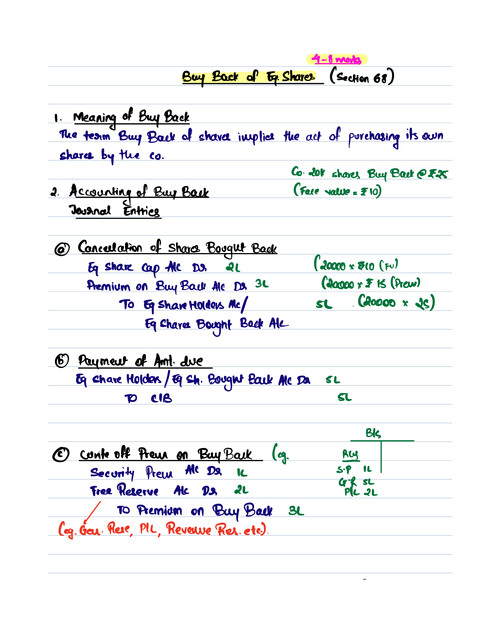 4-8 marks
Buy Back of Eq Shares (Section 68)
1. Meaning of Buy Back
The term Buy Back of shares implies the act of purchasing its own
shares by the co.
Co. 20k shares Buy Back @ ₹25
2. Accounting of Buy Back (Face value = ₹10)
Journal Entries
(a) Cancellation of Shares Bought Back
Eq Share Cap A/c Dr 2L (20000 x ₹10 (FV)
Premium on Buy Back A/c Dr 3L (20000 x ₹ 15 (Prem)
To Eq Share Holders A/c/ 5L (20000 x 25)
Eq Shares Bought Back A/c
(b) Payment of Amt. due
Eq Share Holders / Eq Sh. Bought Back A/c Dr 5L
To C/B 5L
B/s
(c) Write off Prem on Buy Back (eg.
R&S
Security Prem A/c Dr 1L S.P 1L
G.R 5L
Free Reserve A/c Dr 2L P/L 2L
To Premium on Buy Back 3L
(eg. Gen. Rese, P/L, Revenue Res. etc.)